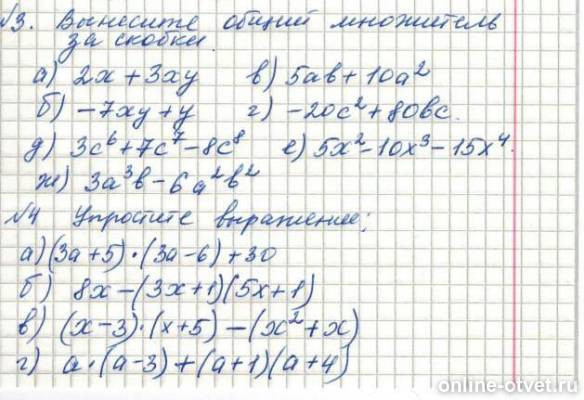 №3. Вынесите общий множитель
за скобки
а) 2x + 3xy в) 5ab + 10a²
б) -7xy + y г) -20c² + 80bc.
д) 3c⁶ + 7c⁷ - 8c⁸ е) 5x² - 10x³ - 15x⁴.
ж) 3a³b - 6a²b²
№4 Упростите выражение;
а) (3a + 5) · (3a - 6) + 30
б) 8x - (3x + 1)(5x + 1)
в) (x - 3) · (x + 5) - (x² + x)
г) a · (a - 3) + (a + 1)(a + 4)
online-otvet.ru